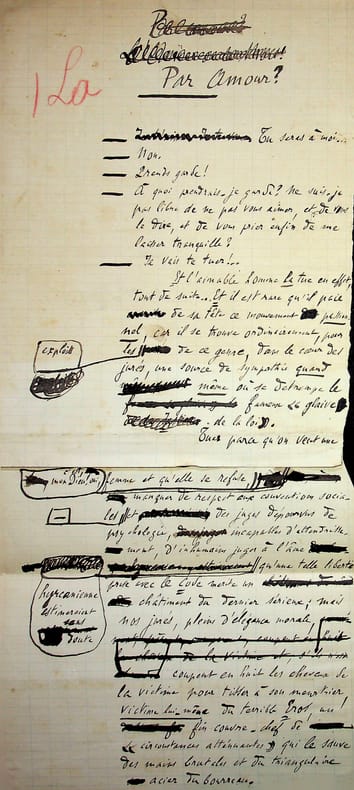 1 La
Par Amour?
— Tu seras à moi...
— Non.
— Prends garde!
— À quoi prendrais-je garde? Ne suis-je
pas libre de ne pas vous aimer, et de vous
le dire, et de vous prier enfin de me
laisser tranquille?
— Je vais te tuer!...
Et l'aimable homme la tue en effet,
tout de suite... Et il est rare qu'il paie
de sa tête ce mouvement
car il se trouve ordinairement, pour
les
exploits
de ce genre, dans le cœur des
jurés, une source de sympathie quand
même où se detrempe le
fameux « glaive
de la loi ».
Tuer parce qu'on veut une
femme et qu'elle se refuse,
mon Dieu! oui
manquer de respect aux conventions socia-
les et des juges dépourvus de
psychologie, incapables d'attendrisse-
ment, d'inhumains juges à l'âme
hyrcanienne
estimeraient
sans
doute
qu'une telle liberté
prise avec le Code mérite un
châtiment du dernier sérieux; mais
nos jurés, pleins d'élégance morale,
coupent en huit les cheveux de
la victime pour tisser à son meurtrier
victime lui-même du terrible Eros, un
fin couvre-chef de
« circonstances atténuantes » qui le sauve
des mains brutales et du triangulaire
acier du bourreau.